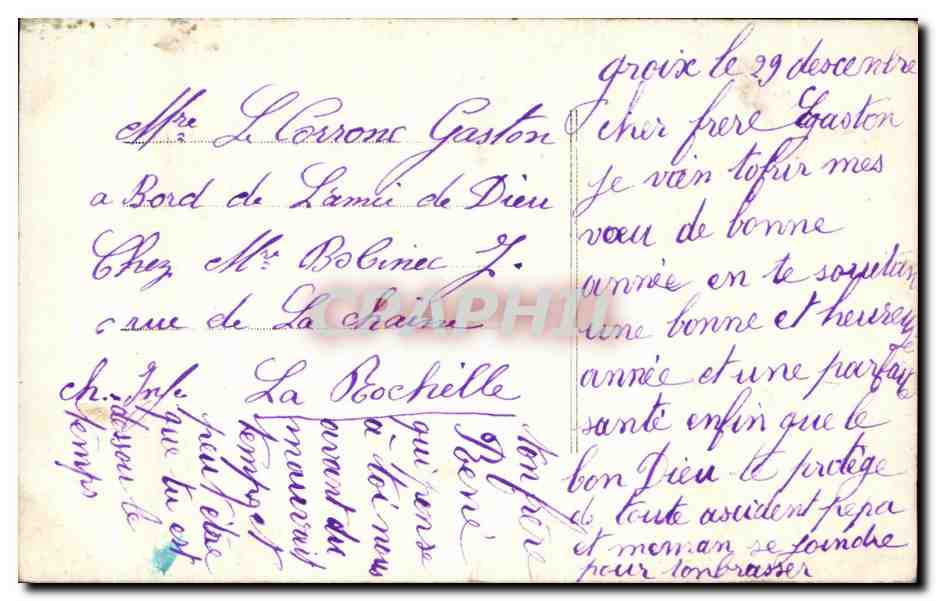 Mre Le Corronc Gaston
a Bord de L'amie de Dieu
Chez Mre Bobinec J.
rue de La chaine
ch.-Inf. La Rochelle
groix le 29 descenbre
cher frere Gaston
je vien tofrir mes
vœu de bonne
année en te souetan
une bonne et heureuse
année et une parfaite
santé enfin que le
bon Dieu te protège
de toute assident pepa
et meman se joindre
pour tonbrasser
tonfrère
René
qui pense
a toi nous
avant du
mauvait
temps et
peut être
que tu est
dessou le
temps
CRAPHIL